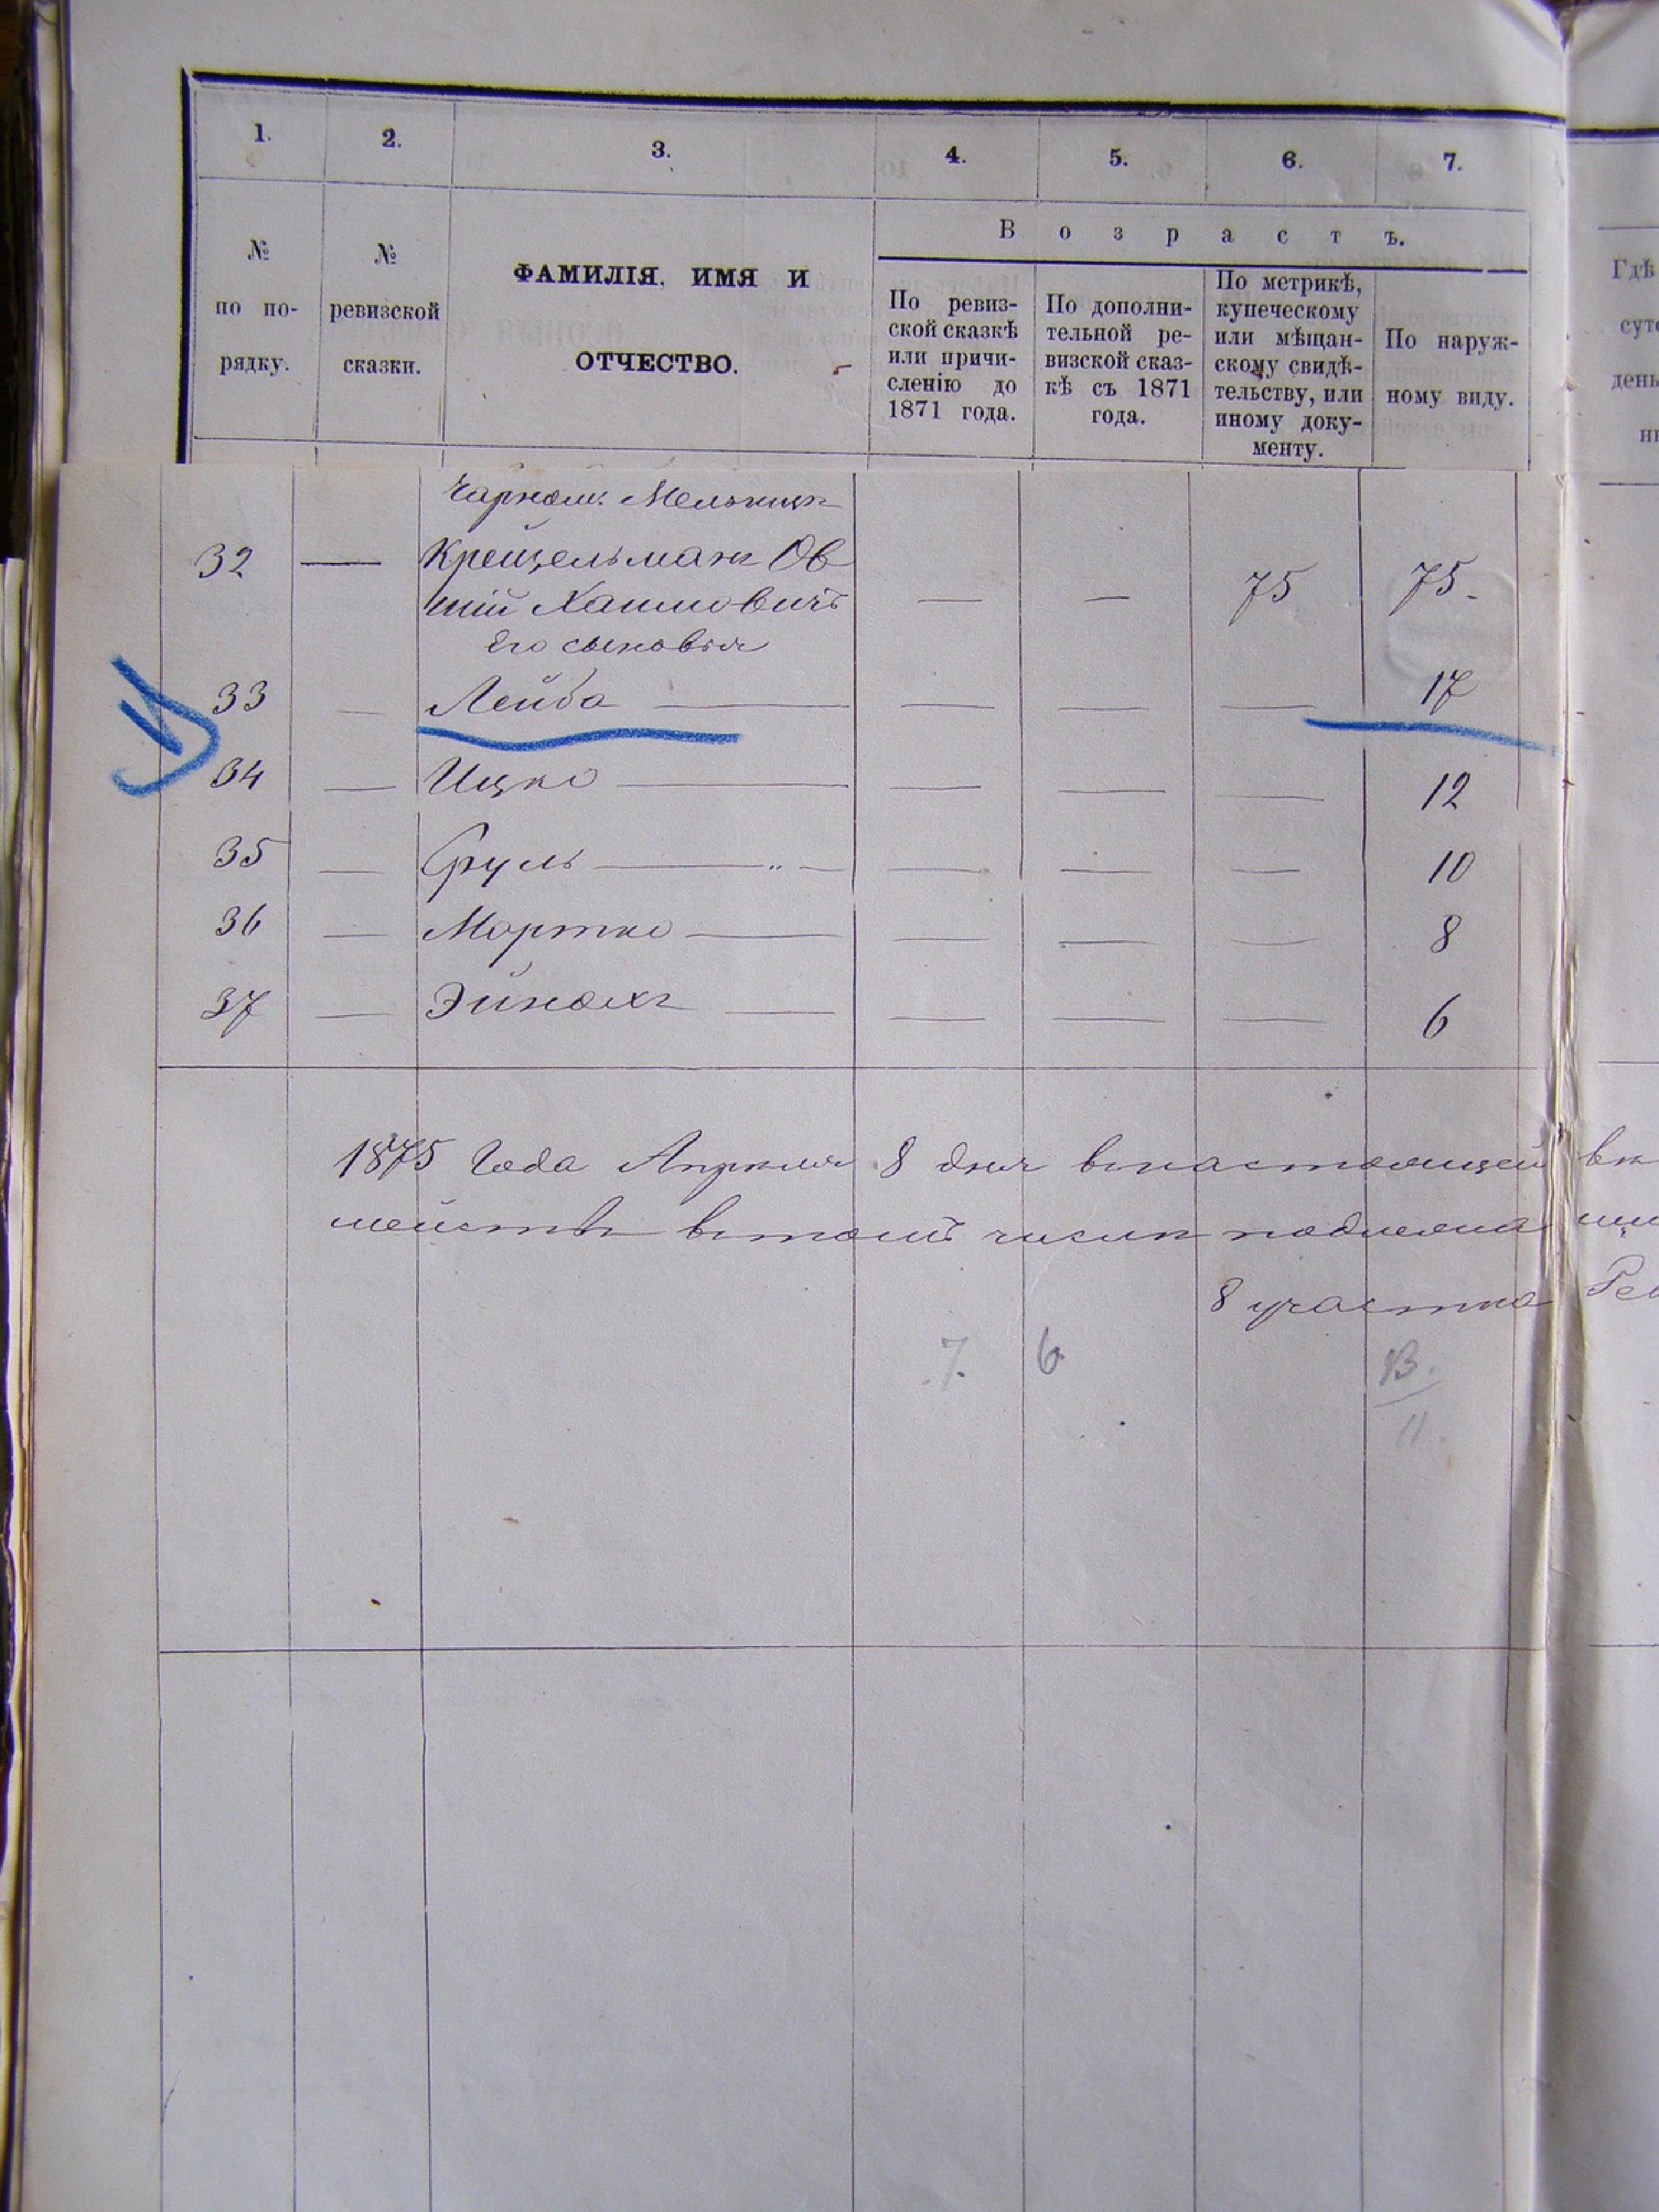 1. 2. 3. 4. 5. 6. 7.
В о з р а с т ъ.
№ по по- рядку.
№ ревизской сказки.
ФАМИЛІЯ, ИМЯ И
ОТЧЕСТВО.
По ревиз-
ской сказкѣ
или причи-
сленію до
1871 года.
По дополни-
тельной ре-
визской сказ-
кѣ съ 1871
года.
По метрикѣ,
купеческому
или мѣщан-
скому свидѣ-
тельству, или
иному доку-
менту.
По наруж-
ному виду.
Гдѣ
32 — Крещельманъ Ов
ший Хаимовичъ — — 75 75.
Его сыновья
33 — Лейба — — — — 17
34 — Ицко — — — — 12
35 — Сруль — — — — 10
36 — Мортко — — — — 8
37 — Эйнохъ — — — — 6
1875 Года Апрѣля 8 дня внастоящей
мейств втомъ числѣ
8 участка
7. 6 13.
11.